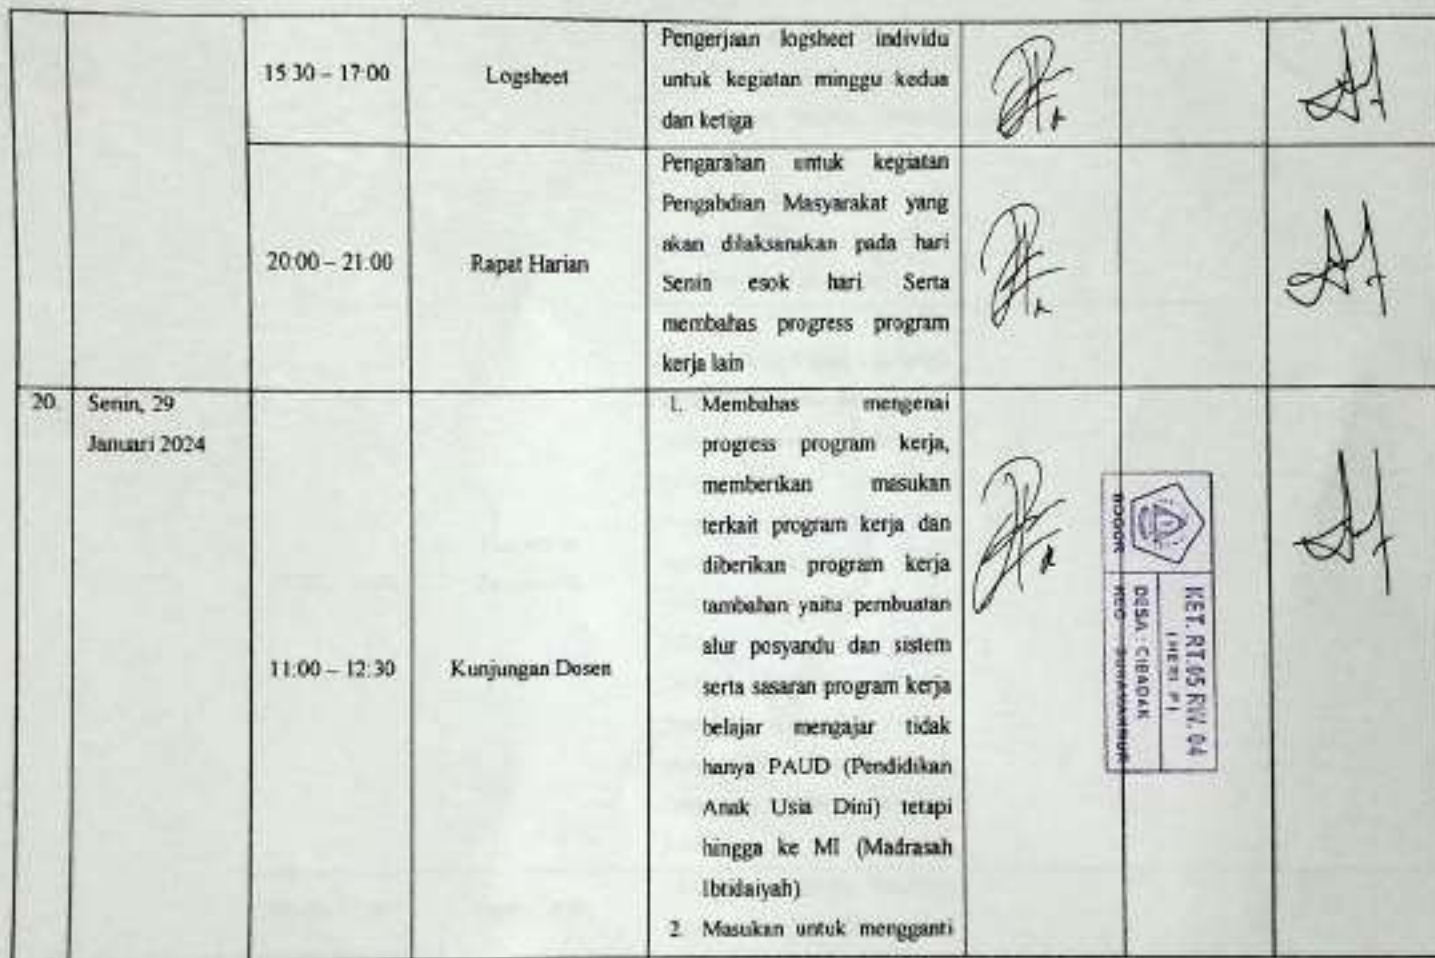 15:30 – 17:00
Logsheet
Pengerjaan logsheet individu
untuk kegiatan minggu kedua
dan ketiga
20:00 – 21:00
Rapat Harian
Pengarahan untuk kegiatan
Pengabdian Masyarakat yang
akan dilaksanakan pada hari
Senin esok hari. Serta
membahas progress program
kerja lain
20.
Senin, 29
Januari 2024
11:00 – 12:30
Kunjungan Dosen
1. Membahas mengenai
progress program kerja,
memberikan masukan
terkait program kerja dan
diberikan program kerja
tambahan yaitu pembuatan
alur posyandu dan sistem
serta sasaran program kerja
belajar mengajar tidak
hanya PAUD (Pendidikan
Anak Usia Dini) tetapi
hingga ke MI (Madrasah
Ibtidaiyah)
2. Masukan untuk mengganti
KET. RT.05 RW. 04
(HERI P)
DESA : CIBADAK
KEC
BOGOR